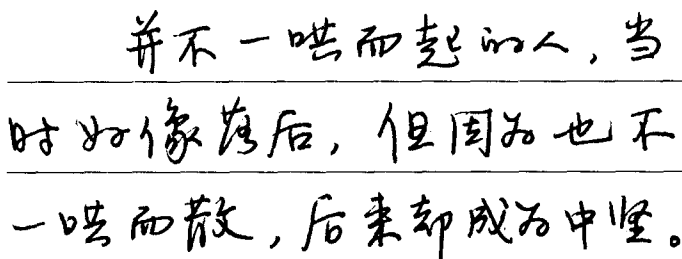 并不一哄而起的人，当
时好像落后，但因为也不
一哄而散，后来却成为中坚。